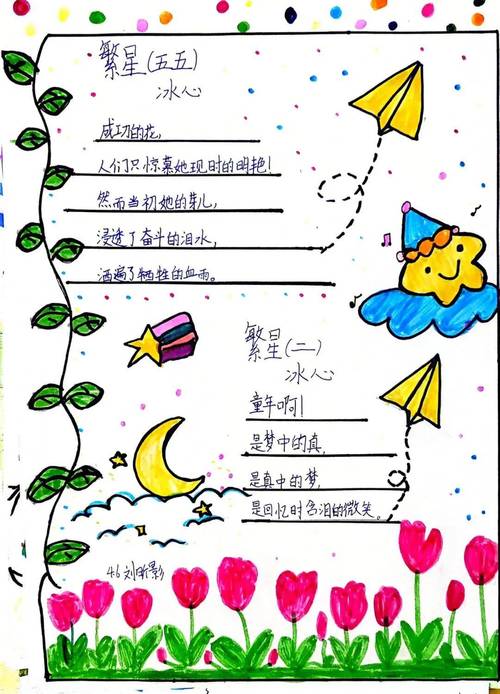 繁星(五五)
冰心
成功的花,
人们只惊慕她现时的明艳!
然而当初她的芽儿,
浸透了奋斗的泪水,
洒遍了牺牲的血雨。
繁星(二)
冰心
童年啊!
是梦中的真,
是真中的梦,
是回忆时含泪的微笑。
4.6 刘昕影